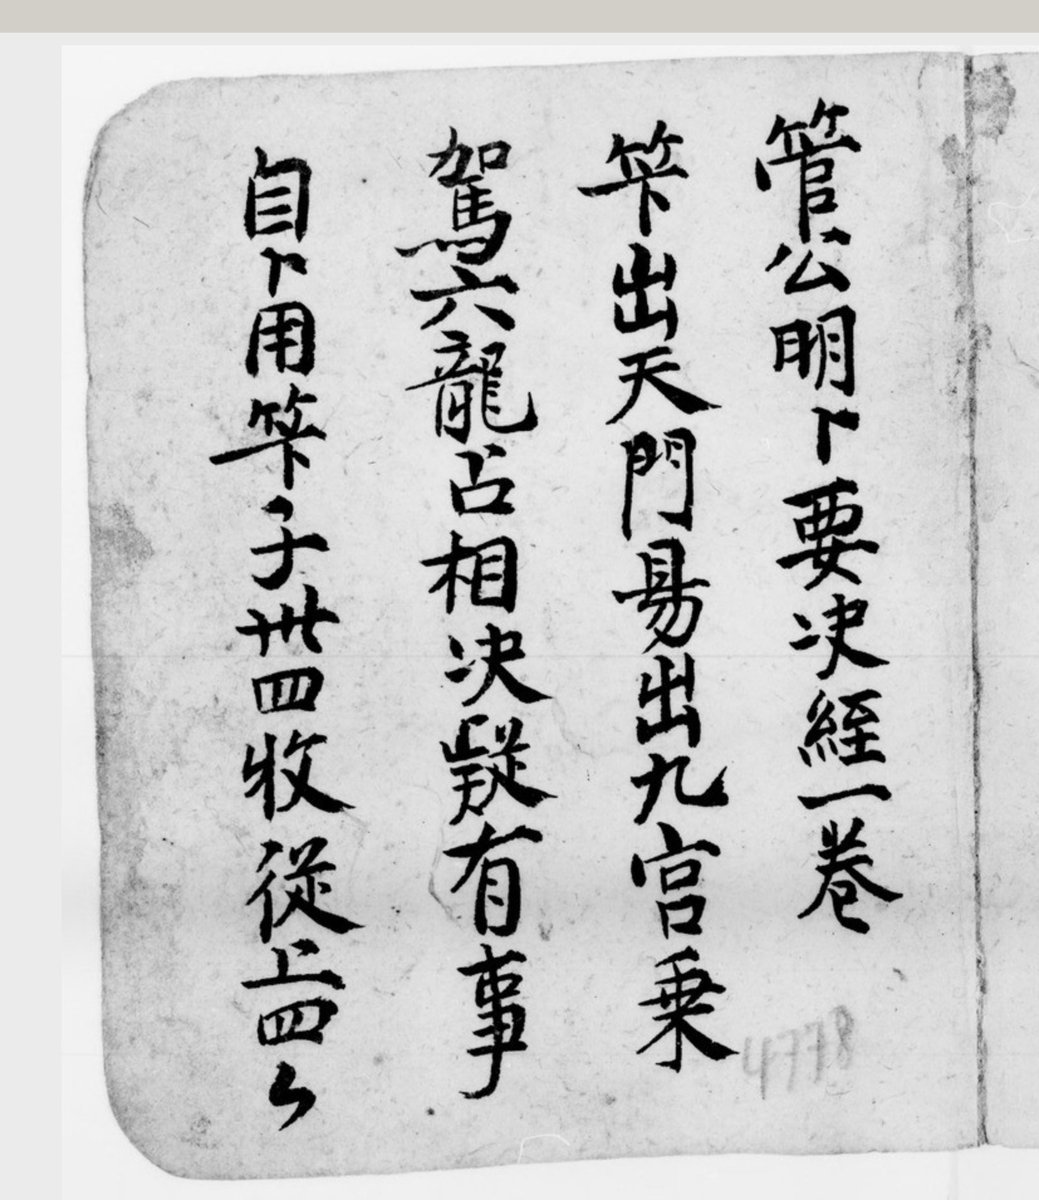 管公明卜要决經一卷
笇出天門易出九宮乗
駕六龍占相决疑有事
自卜用笇子卅四收從上四〻
4778